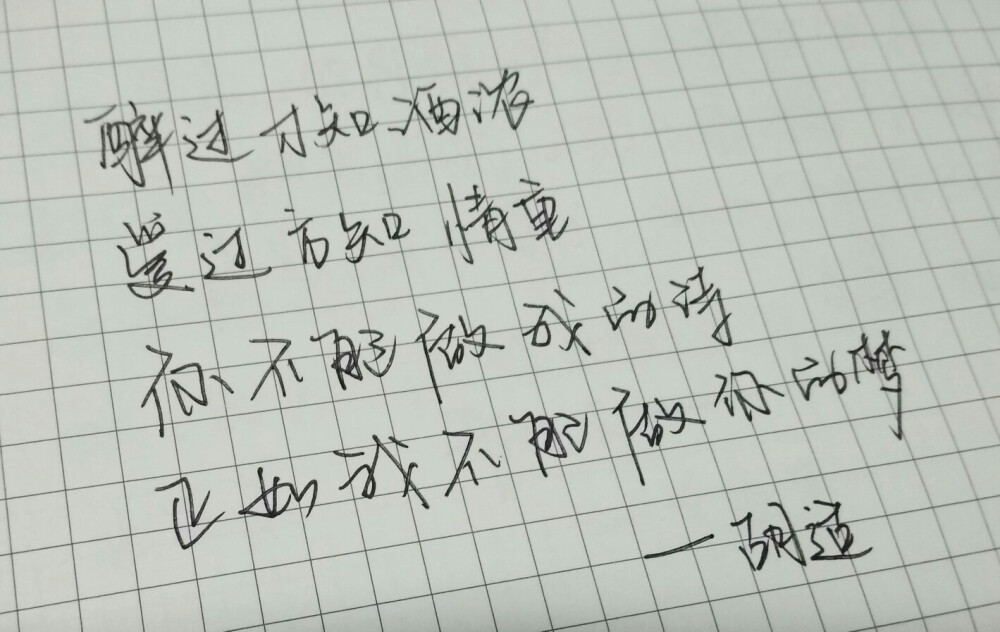 醉过才知酒浓
爱过方知情重
你不能做我的诗
正如我不能做你的梦
—胡适